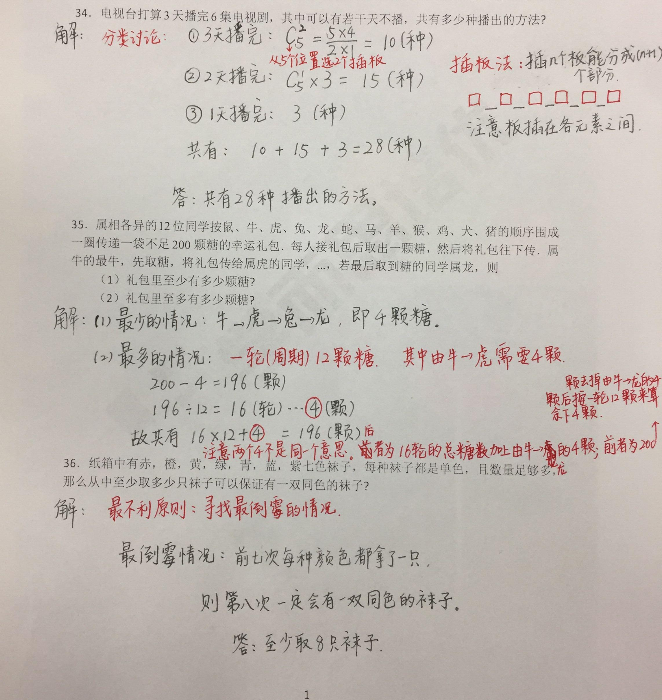 34．电视台打算3天播完6集电视剧，其中可以有若干天不播，共有多少种播出的方法？
解：分类讨论：①3天播完：C₅² = 5×4/2×1 = 10(种)
从5个位置选2个插板
插板法：插n个板能分成(n+1)个部分.
②2天播完：C₅¹×3 = 15 (种)
□_□_□_□_□_□
③1天播完：3 (种)
注意板插在各元素之间.
共有：10 + 15 + 3 = 28(种)
答：共有28种播出的方法。
35．属相各异的12位同学按鼠、牛、虎、兔、龙、蛇、马、羊、猴、鸡、犬、猪的顺序围成
一圈传递一袋不足200颗糖的幸运礼包．每人接礼包后取出一颗糖，然后将礼包往下传．属
牛的最牛，先取糖，将礼包传给属虎的同学，…，若最后取到糖的同学属龙，则
（1）礼包里至少有多少颗糖？
（2）礼包里至多有多少颗糖？
解：(1) 最少的情况：牛→虎→兔→龙，即4颗糖。
(2) 最多的情况：一轮(周期)12颗糖. 其中由牛→虎需要4颗.
200 - 4 = 196 (颗)
196 ÷ 12 = 16 (轮) … ④ (颗)
故共有 16×12+④ = 196 (颗)
颗去掉由牛→龙的4
颗后按一轮12颗来算
余下4颗.
注意两个4不是同一个意思。前者为16轮的总糖数加上由牛→龙的4颗；前者为200
后
36．纸箱中有赤，橙，黄，绿，青，蓝，紫七色袜子，每种袜子都是单色，且数量足够多，
那么从中至少取多少只袜子可以保证有一双同色的袜子？
解：最不利原则：寻找最倒霉的情况.
最倒霉情况：前七次每种颜色都拿了一只.
则第八次一定会有一双同色的袜子。
答：至少取8只袜子.
1